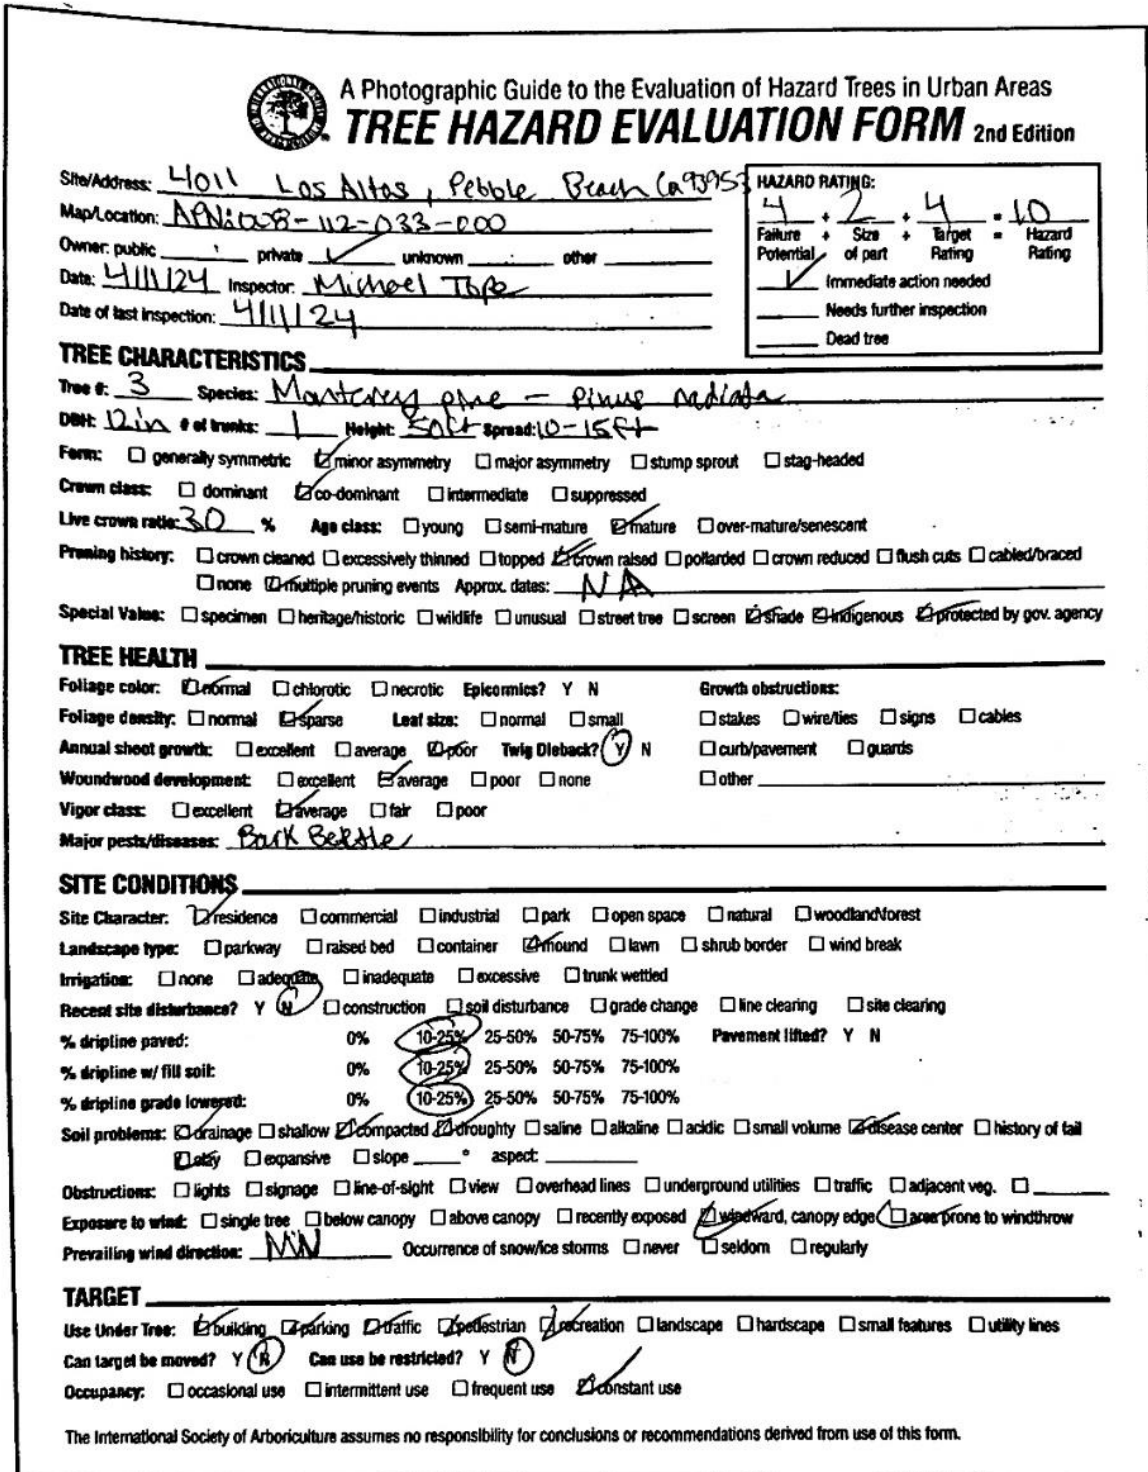 A Photographic Guide to the Evaluation of Hazard Trees in Urban Areas
TREE HAZARD EVALUATION FORM 2nd Edition
Site/Address: 4011 Los Altos, Pebble Beach Ca 93953
Map/Location: APN:008-112-033-000
Owner: public private ✓ unknown other
Date: 4/11/24 Inspector: Michael Tope
Date of last inspection: 4/11/24
HAZARD RATING:
4 + 2 + 4 = 10
Failure + Size + Target = Hazard
Potential of part Rating Rating
✓ Immediate action needed
Needs further inspection
Dead tree
TREE CHARACTERISTICS
Tree #: 3 Species: Monterey pine - pinus radiata
DBH: 12in # of trunks: 1 Height: 50ft Spread: 10-15ft
Form: ☐ generally symmetric ☑ minor asymmetry ☐ major asymmetry ☐ stump sprout ☐ stag-headed
Crown class: ☐ dominant ☑ co-dominant ☐ intermediate ☐ suppressed
Live crown ratio: 30 % Age class: ☐ young ☐ semi-mature ☑ mature ☐ over-mature/senescent
Pruning history: ☐ crown cleaned ☐ excessively thinned ☐ topped ☑ crown raised ☐ pollarded ☐ crown reduced ☐ flush cuts ☐ cabled/braced
☐ none ☑ multiple pruning events Approx. dates: NA
Special Value: ☐ specimen ☐ heritage/historic ☐ wildlife ☐ unusual ☐ street tree ☐ screen ☑ shade ☑ indigenous ☑ protected by gov. agency
TREE HEALTH
Foliage color: ☑ normal ☐ chlorotic ☐ necrotic Epicormics? Y N
Foliage density: ☐ normal ☑ sparse Leaf size: ☐ normal ☐ small
Annual shoot growth: ☐ excellent ☐ average ☑ poor Twig Dieback? Y N
Woundwood development: ☐ excellent ☑ average ☐ poor ☐ none
Vigor class: ☐ excellent ☑ average ☐ fair ☐ poor
Major pests/diseases: Bark Beetle
Growth obstructions:
☐ stakes ☐ wire/ties ☐ signs ☐ cables
☐ curb/pavement ☐ guards
☐ other
SITE CONDITIONS
Site Character: ☑ residence ☐ commercial ☐ industrial ☐ park ☐ open space ☐ natural ☐ woodland\forest
Landscape type: ☐ parkway ☐ raised bed ☐ container ☑ mound ☐ lawn ☐ shrub border ☐ wind break
Irrigation: ☐ none ☐ adequate ☐ inadequate ☐ excessive ☐ trunk wettled
Recent site disturbance? Y N ☐ construction ☐ soil disturbance ☐ grade change ☐ line clearing ☐ site clearing
% dripline paved: 0% 10-25% 25-50% 50-75% 75-100% Pavement lifted? Y N
% dripline w/ fill soil: 0% 10-25% 25-50% 50-75% 75-100%
% dripline grade lowered: 0% 10-25% 25-50% 50-75% 75-100%
Soil problems: ☑ drainage ☐ shallow ☑ compacted ☑ droughty ☐ saline ☐ alkaline ☐ acidic ☐ small volume ☑ disease center ☐ history of fail
☑ clay ☐ expansive ☐ slope ° aspect:
Obstructions: ☐ lights ☐ signage ☐ line-of-sight ☐ view ☐ overhead lines ☐ underground utilities ☐ traffic ☐ adjacent veg. ☐
Exposure to wind: ☐ single tree ☐ below canopy ☐ above canopy ☐ recently exposed ☑ windward, canopy edge ☐ area prone to windthrow
Prevailing wind direction: Occurrence of snow/ice storms ☐ never ☑ seldom ☐ regularly
TARGET
Use Under Tree: ☑ building ☑ parking ☑ traffic ☑ pedestrian ☑ recreation ☐ landscape ☐ hardscape ☐ small features ☐ utility lines
Can target be moved? Y N Can use be restricted? Y N
Occupancy: ☐ occasional use ☐ intermittent use ☐ frequent use ☑ constant use
The International Society of Arboriculture assumes no responsibility for conclusions or recommendations derived from use of this form.